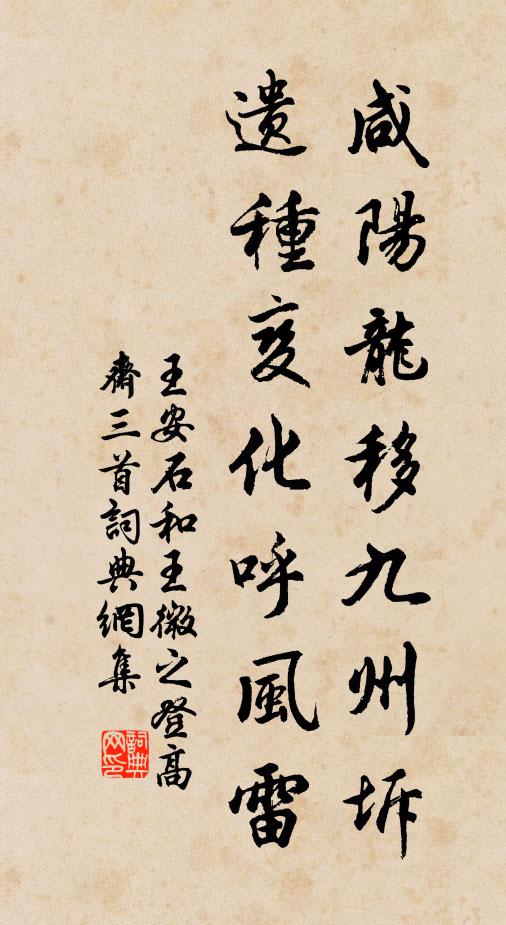 咸陽龍移九州坼
遺種变化呼風雷
王安石和王微之登高
齋三首詞典網集
詞典
网印